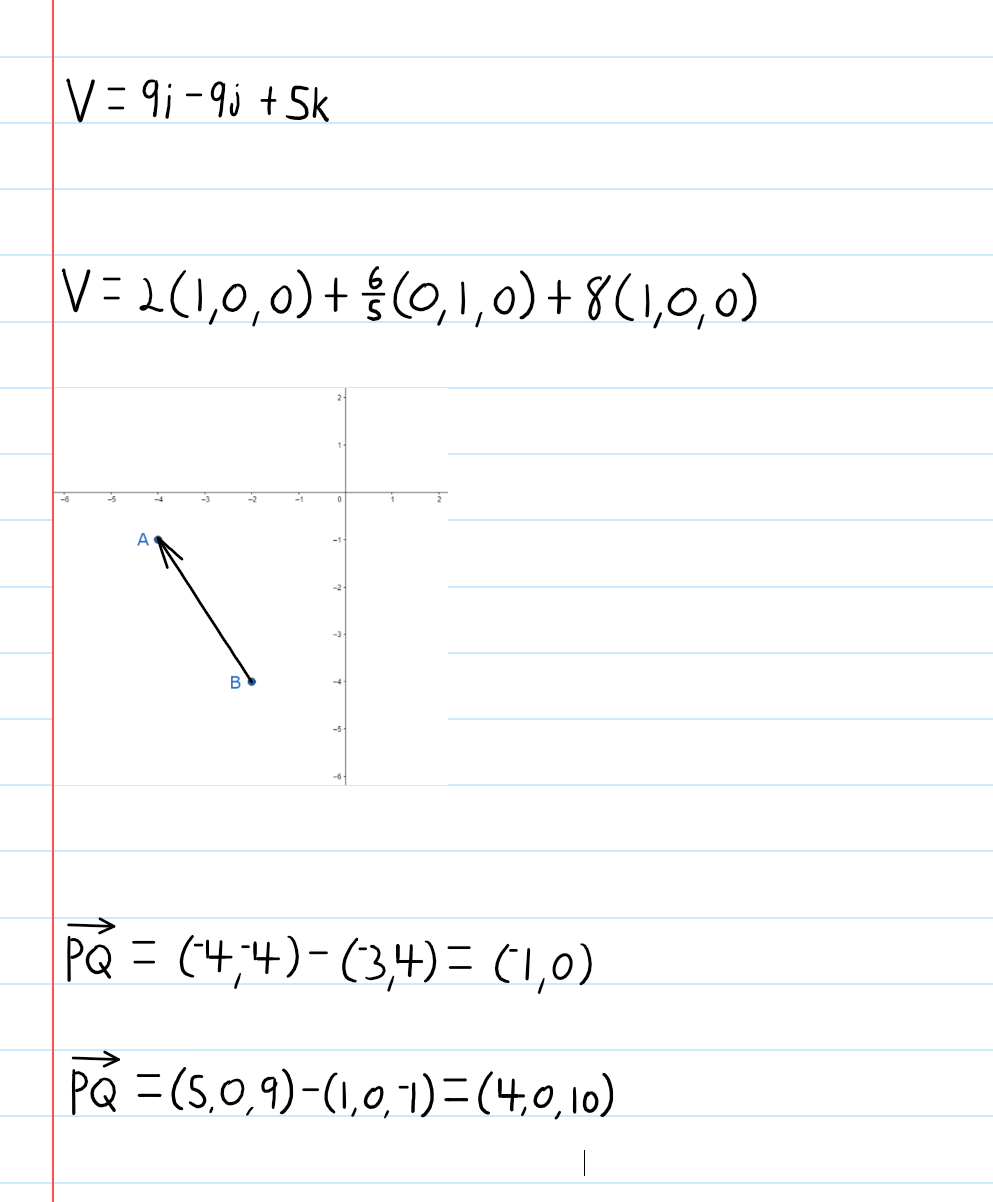 V = 9i - 9j + 5k
V = 2(1,0,0) + 6/5(0,1,0) + 8(1,0,0)
2
1
-6 -5 -4 -3 -2 -1 0 1 2
A -1
-2
-3
B -4
-5
-6
PQ = (-4,-4) - (-3,4) = (-1,0)
PQ = (5,0,9) - (1,0,-1) = (4,0,10)